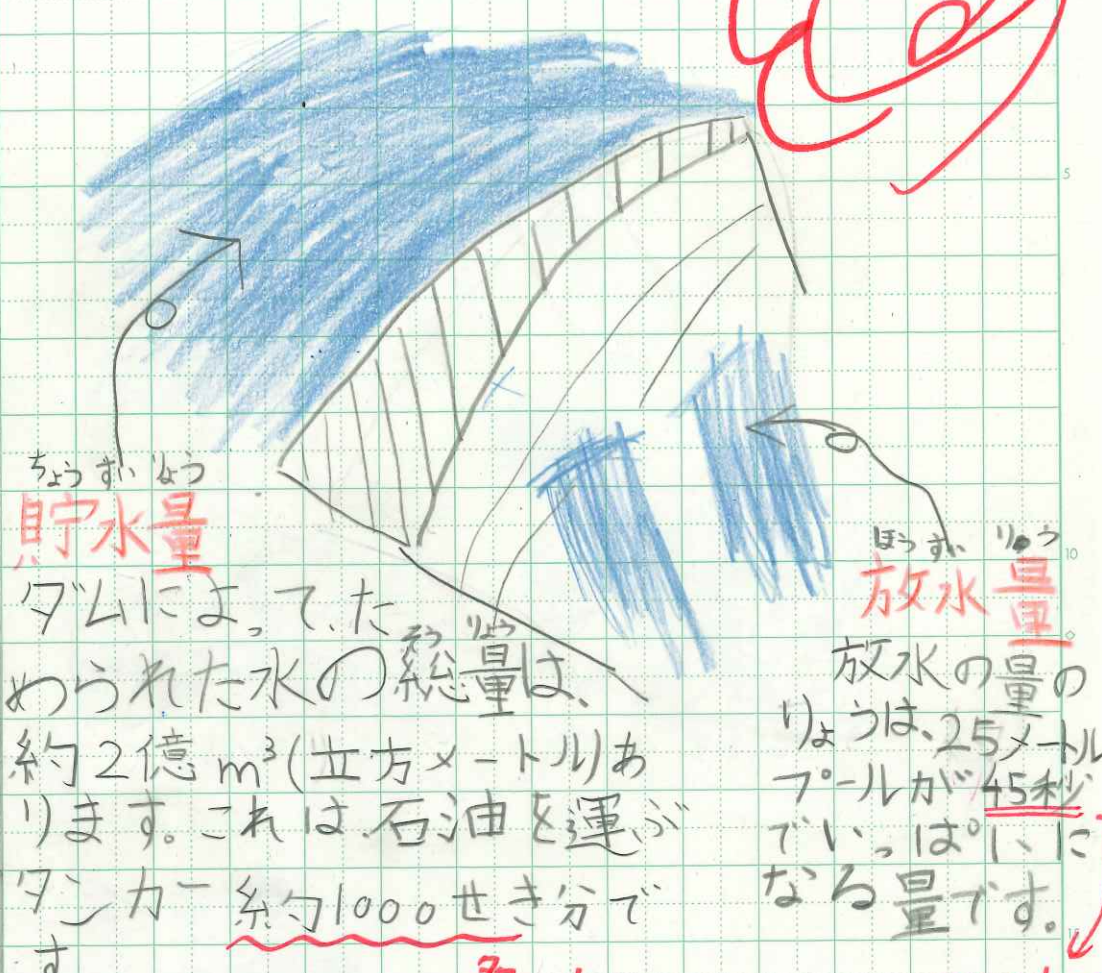 ちょうすいりょう
貯水量
ダムによって、た
そうりょう
められた水の総量は、
約2億m³(立方メートル)あ
ります。これは、石油を運ぶ
タンカー約1000せき分で
す
ほうすいりょう
放水量
放水の量の
りょうは、25メートル
プールが45秒
でいっぱいに
なる量です。
5
10
15